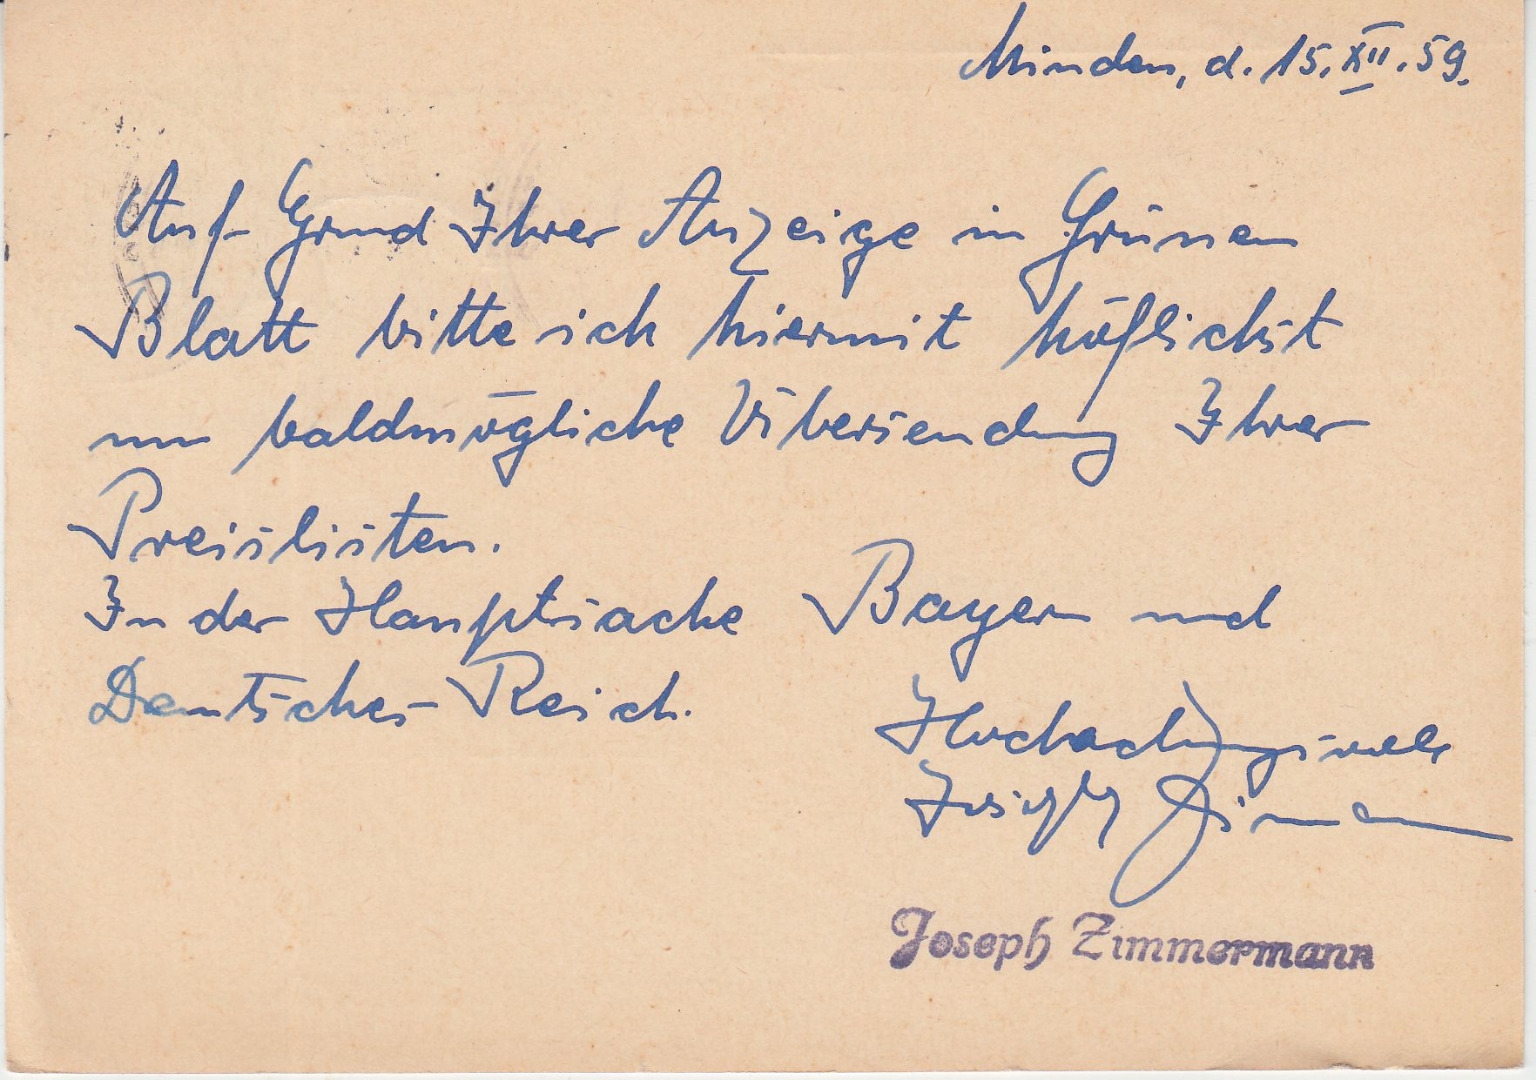 Minden, d. 15. XII. 59.
Auf Grund Ihrer Anzeige in Grünen
Blatt bitte ich hiermit höflichst
um baldmögliche Übersendung Ihrer
Preislisten.
In der Hauptsache Bayern und
Deutsches Reich.
Hochachtungsvoll
Joseph Zimmermann
Joseph Zimmermann